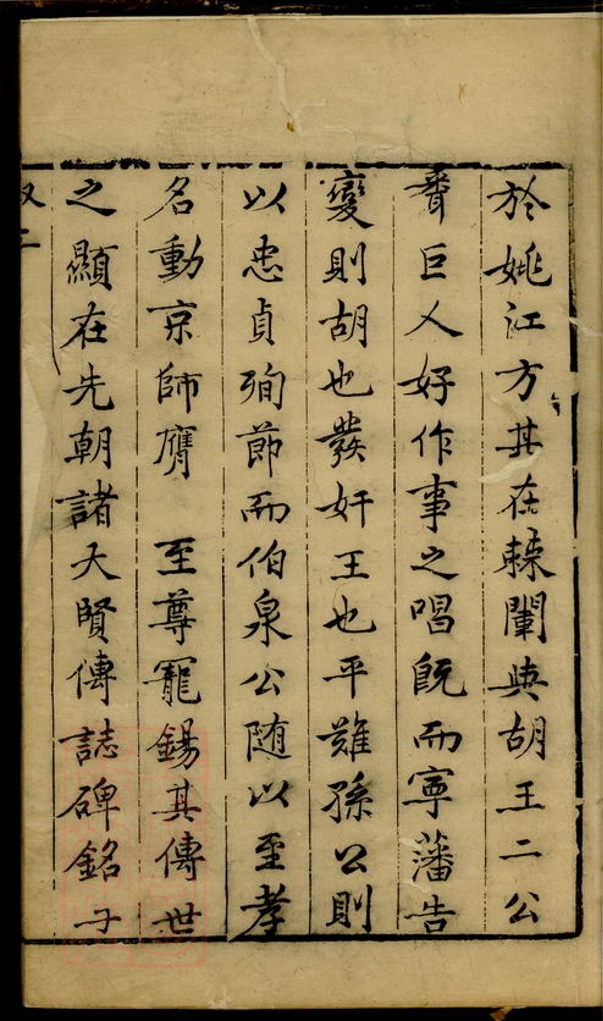 於姚江方其在棘闈與胡王二公
齊巨人好作事之唱旣而寧藩告
變則胡也發奸王也平難孫公則
以忠貞殉節而伯泉公随以至孝
名動京師膺　至尊寵錫其傳世
之顯在先朝諸大賢傳誌碑銘子
叙二